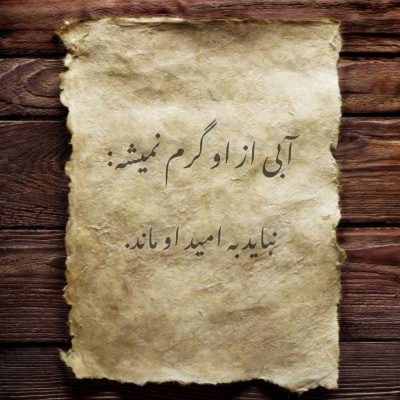 آبی از او گرم نمیشه:
نباید به امید او ماند.